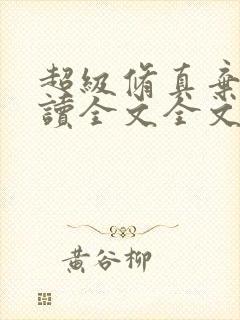 超級脩真棄
讀全文全文
黄谷柳